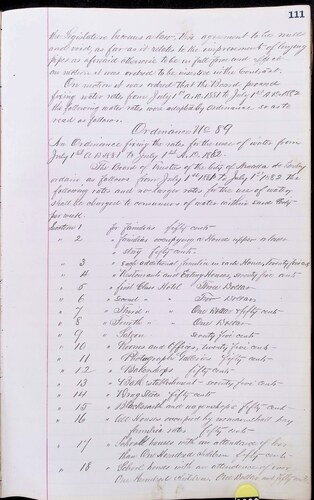 111
the legislature becomes a law, this agreement to be null
and void, as far as it relates to the impressments of laying
pipes as aforesaid otherwise to be in full force and effect
on motion it was ordered to be inserted in the Contract.
On motion it was ordered that the Board proceed
fixing water rates from July 1st A.D. 1881 to July 1st A.D. 1882
the following water rates were adopted by Ordinance so as to
read as follows.
Ordinance No 89
An Ordinance fixing the rates for the use of water from
July 1st A.D. 1881 to July 1st A.D. 1882.
The Board of Trustees of the City of do
ordain as follows from July 1st 1881 to July 1st 1882 the
following rates and no larger rates for the use of water
shall be charged to consumers of water within said City
per week.
Section 1 for families fifty cents
" 2 " families occupying a house upper or lower
story fifty cents
" 3 " each additional families in each House, twenty five cents
" 4 " Restaurants and Eating Houses, seventy five cents
" 5 " first Class Hotel Dollars
" 6 " Second " Two Dollars
" 7 " Third " One Dollar & fifty cents
" 8 " Fourth " One Dollar
" 9 " Saloon seventy five cents
" 10 " Stores and Offices, twenty five cents
" 11 " Photograph Galleries fifty cents
" 12 " fifty cents
" 13 " Bath establishment seventy five cents
" 14 " Drug Store fifty cents
" 15 " Blacksmith and wagonshops fifty cents
" 16 " Houses occupied by
families rates fifty cents
" 17 " School houses with an attendance of less
than One Hundred children fifty cents
" 18 " School houses with an attendance of over
One Hundred children One Dollar and fifty cents